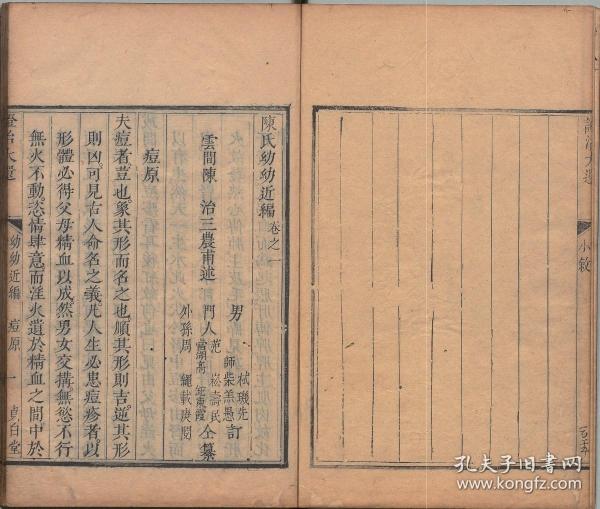 陳氏幼幼近編 卷之一
雲間陳 治三農甫述
男 栻璣先
師柴羔愚 訂
門人 范 崧壽民
外孫周 繩載庚閱 仝纂
痘原
夫痘者荳也象其形而名之也順其形則吉逆其形
則凶可見古人命名之義凡人生必患痘疹者以
形體必得父母精血以成然男女交搆無慾不行
無火不動慾情肆意而淫火遺於精血之間中於
證治大還
幼幼近編 痘原 一 貞白堂
證治大還
小敘
孔夫子旧书网
www.kongfz.com